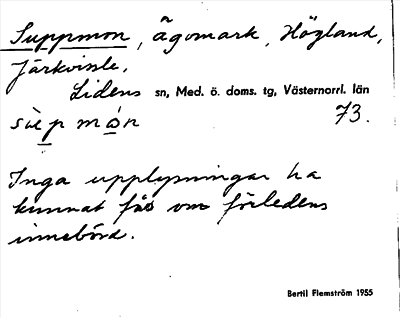 Suppmon, ägomark, Högland,
Järkvissle,
Lidens sn, Med. ö. doms. tg, Västernorrl. län
sùpmón 73.
Inga upplysningar ha
kunnat fås om förledens
innebörd.
Bertil Flemström 1955